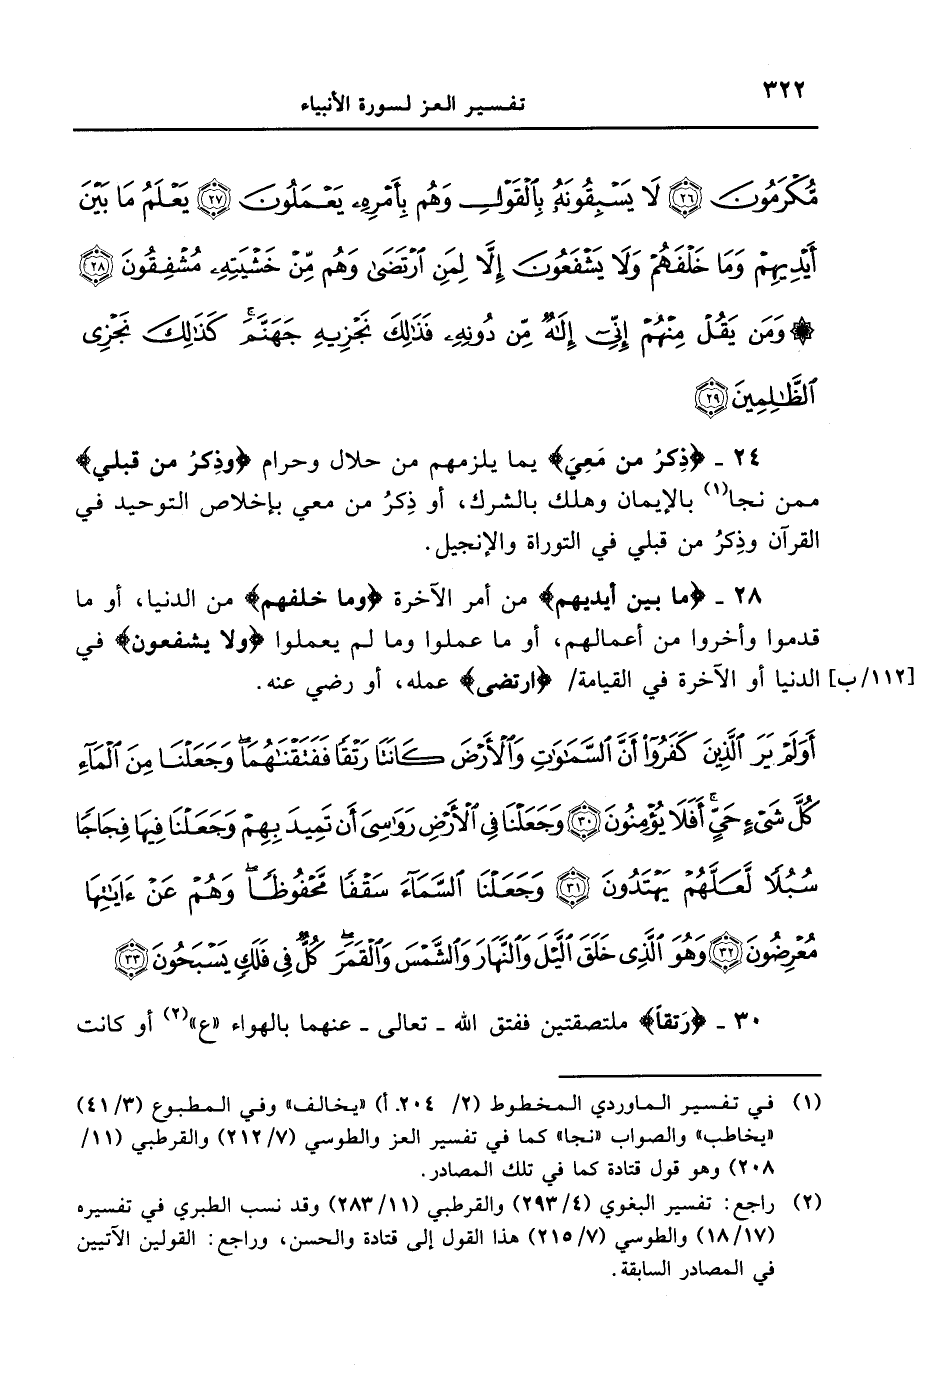 ٣٢٢
تفسير العز لسورة الأنبياء
مُّكْرَمُونَ ٢٦ لَا يَسْبِقُونَهُۥ بِٱلْقَوْلِ وَهُم بِأَمْرِهِۦ يَعْمَلُونَ ٢٧ يَعْلَمُ مَا بَيْنَ
أَيْدِيهِمْ وَمَا خَلْفَهُمْ وَلَا يَشْفَعُونَ إِلَّا لِمَنِ ٱرْتَضَىٰ وَهُم مِّنْ خَشْيَتِهِۦ مُشْفِقُونَ ٢٨
۞ وَمَن يَقُلْ مِنْهُمْ إِنِّىٓ إِلَٰهٌ مِّن دُونِهِۦ فَذَٰلِكَ نَجْزِيهِ جَهَنَّمَ ۚ كَذَٰلِكَ نَجْزِى
ٱلظَّٰلِمِينَ ٢٩
٢٤ ـ ﴿ذِكرُ من مَعِيَ﴾ بما يلزمهم من حلال وحرام ﴿وذِكرُ من قبلي﴾
ممن نجا(١) بالإيمان وهلك بالشرك، أو ذِكرُ من معي بإخلاص التوحيد في
القرآن وذِكرُ من قبلي في التوراة والإنجيل.
٢٨ ـ ﴿ما بين أيديهم﴾ من أمر الآخرة ﴿وما خلفهم﴾ من الدنيا، أو ما
قدموا وأخروا من أعمالهم، أو ما عملوا وما لم يعملوا ﴿ولا يشفعون﴾ في
[١١٢/ب] الدنيا أو الآخرة في القيامة/ ﴿ارتضى﴾ عمله، أو رضي عنه.
أَوَلَمْ يَرَ ٱلَّذِينَ كَفَرُوٓا۟ أَنَّ ٱلسَّمَٰوَٰتِ وَٱلْأَرْضَ كَانَتَا رَتْقًا فَفَتَقْنَٰهُمَا ۖ وَجَعَلْنَا مِنَ ٱلْمَآءِ
كُلَّ شَىْءٍ حَىٍّ ۚ أَفَلَا يُؤْمِنُونَ ٣٠ وَجَعَلْنَا فِى ٱلْأَرْضِ رَوَٰسِىَ أَن تَمِيدَ بِهِمْ وَجَعَلْنَا فِيهَا فِجَاجًا
سُبُلًا لَّعَلَّهُمْ يَهْتَدُونَ ٣١ وَجَعَلْنَا ٱلسَّمَآءَ سَقْفًا مَّحْفُوظًا ۖ وَهُمْ عَنْ ءَايَٰتِهَا
مُعْرِضُونَ ٣٢ وَهُوَ ٱلَّذِى خَلَقَ ٱلَّيْلَ وَٱلنَّهَارَ وَٱلشَّمْسَ وَٱلْقَمَرَ ۖ كُلٌّ فِى فَلَكٍ يَسْبَحُونَ ٣٣
٣٠ ـ ﴿رَتقاً﴾ ملتصقتين ففتق الله ـ تعالى ـ عنهما بالهواء «ع»(٢) أو كانت
(١) في تفسير الماوردي المخطوط (٢/ ٢٠٤. أ) «يخالف» وفي المطبوع (٤١/٣)
«يخاطب» والصواب «نجا» كما في تفسير العز والطوسي (٢١٢/٧) والقرطبي (١١/
٢٠٨) وهو قول قتادة كما في تلك المصادر.
(٢) راجع: تفسير البغوي (٢٩٣/٤) والقرطبي (٢٨٣/١١) وقد نسب الطبري في تفسيره
(١٨/١٧) والطوسي (٢١٥/٧) هذا القول إلى قتادة والحسن، وراجع: القولين الآتيين
في المصادر السابقة.